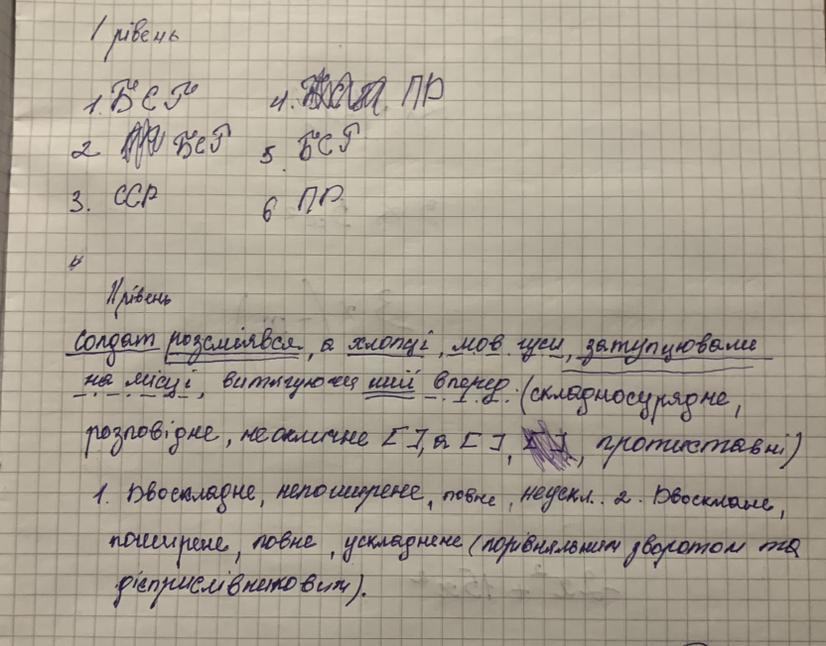 І рівень
1. БСР 4. ПР
2. БСР 5. БСР
3. ССР 6 ПР
ІІ рівень
Солдат розсміявся, а хлопці, мов гуси, затупцювали
на місці, витягуючи шиї вперед. (складносурядне,
розповідне, неокличне [ ], а [ ], протиставні)
1. Двоскладне, непоширене, повне, неускл. 2. Двоскладне,
поширене, повне, ускладнене (порівняльним зворотом та
дієприслівниковим).